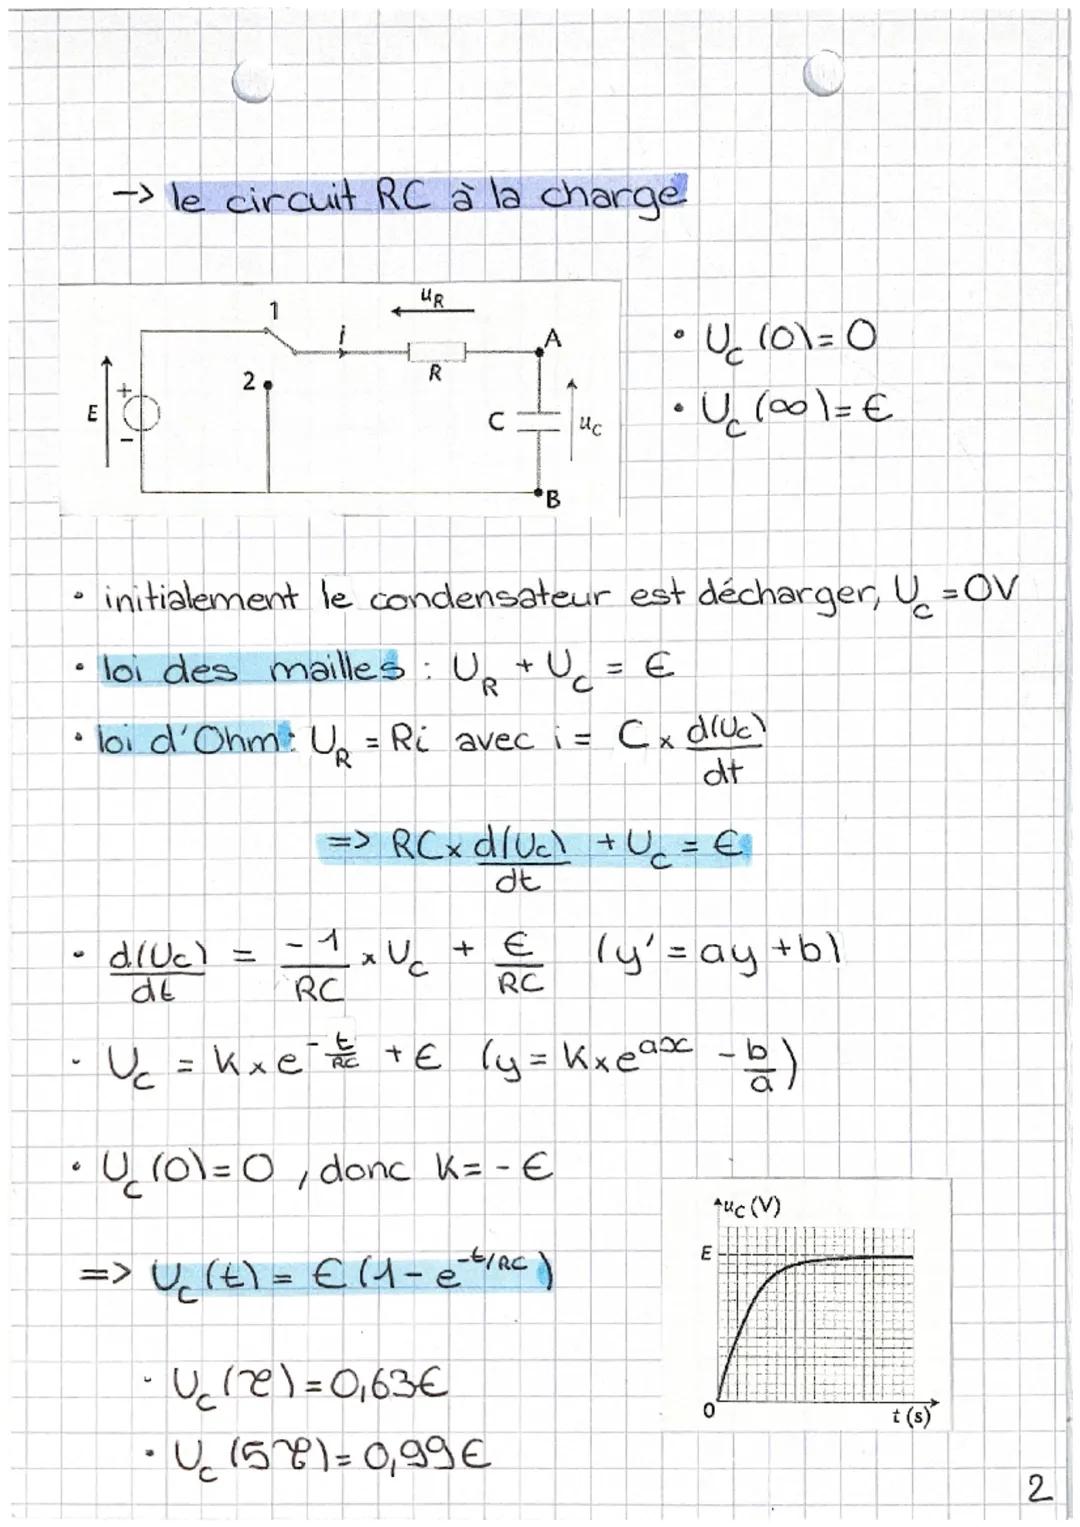 -> le circuit RC à la charge
1
uR
i
A
R
2
E
+
-
C
uC
B
• Uc(0)=0
• Uc(∞)=E
• initialement le condensateur est décharger, Uc=0V
• loi des mailles : UR + Uc = E
• loi d'Ohm: UR = Ri avec i = C × d(Uc)/dt
=> RC × d(Uc)/dt + Uc = E
• d(Uc)/dt = -1/RC × Uc + E/RC (y' = ay + b)
• Uc = K × e^(-t/RC) + E (y = K × e^(ax) - b/a)
• Uc(0)=0, donc K = -E
=> Uc(t) = E(1 - e^(-t/RC))
• Uc(τ) = 0,63E
• Uc(5τ) = 0,99E
uC (V)
E
0
t (s)
2